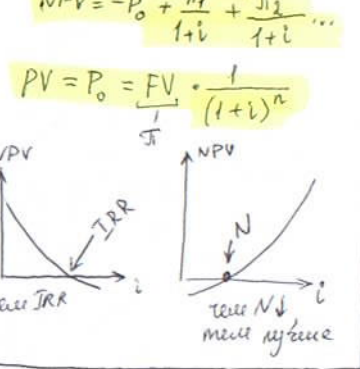 NPV = -P₀ + π₁/(1+i) + π₂/(1+i) ...
PV = P₀ = FV · 1/(1+i)ⁿ
π
NPV
IRR
i
чем IRR
NPV
N
i
чем N↓
тем лучше